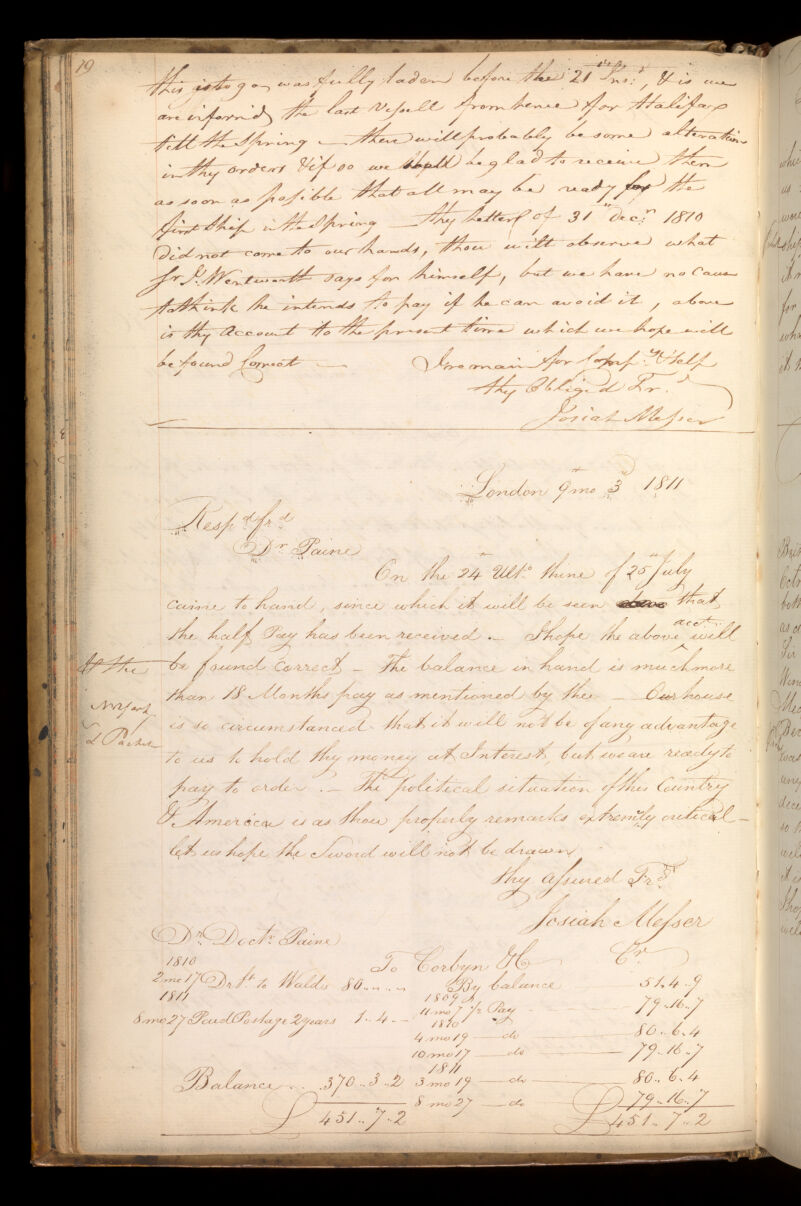 19
this is to go, was fully laden before the 21st Ins:, & is we
are informd, the last Vessell from hence for Halifax
till the Spring — there will probably be some alteration
in thy orders & if so we be glad to receive them
as soon as possible that all may be ready for the
first ship in the Spring — thy letter of 31st Decr. 1810
did not come to our hands, thou wilt observe what
Sr. Jn. Wentworth says for himself, but we have no cause
to think he intends to pay if he can avoid it, above
is thy Account to the present time which we hope will
be found Correct — I remain for & Self
thy Obliged Frd.
Josiah Messer
London 9 mo 3d 1811
Respd. frd.
Dr. Paine
On the 24th Ulto. thine of 25th July
came to hand, since which it will be seen that
the half Pay has been received — I hope the above acct. will
be found correct — The balance in hand is much more
than 18 Months pay as mentioned by thee — Our house
is so circumstanced that it will not be of any advantage
to us to hold thy money at Interest, but we are ready to
pay to order. — The political situation of this Country
& America is as thou properly remarks extremely critical —
let us hope the Sword will not be drawn
thy assured Frd.
Josiah Messer
Dr. Doctr. Paine To Corbyn &C Cr.
1810
2 mo 17 Drft. to Waldo 80 " " By balance 51..4..9
1811
1809
11 mo 7 ½ Pay 79..16..7
8 mo 27 Paid Postage 2 years 1..4..–
1810
4 mo 19 — do 80..6..4
10 mo 17 — do 79..16..7
1811
Balance .. 370..3..2 3 mo 19 — do 80..6..4
8 mo 27 — do 79..16..7
£451..7..2 £451..7..2